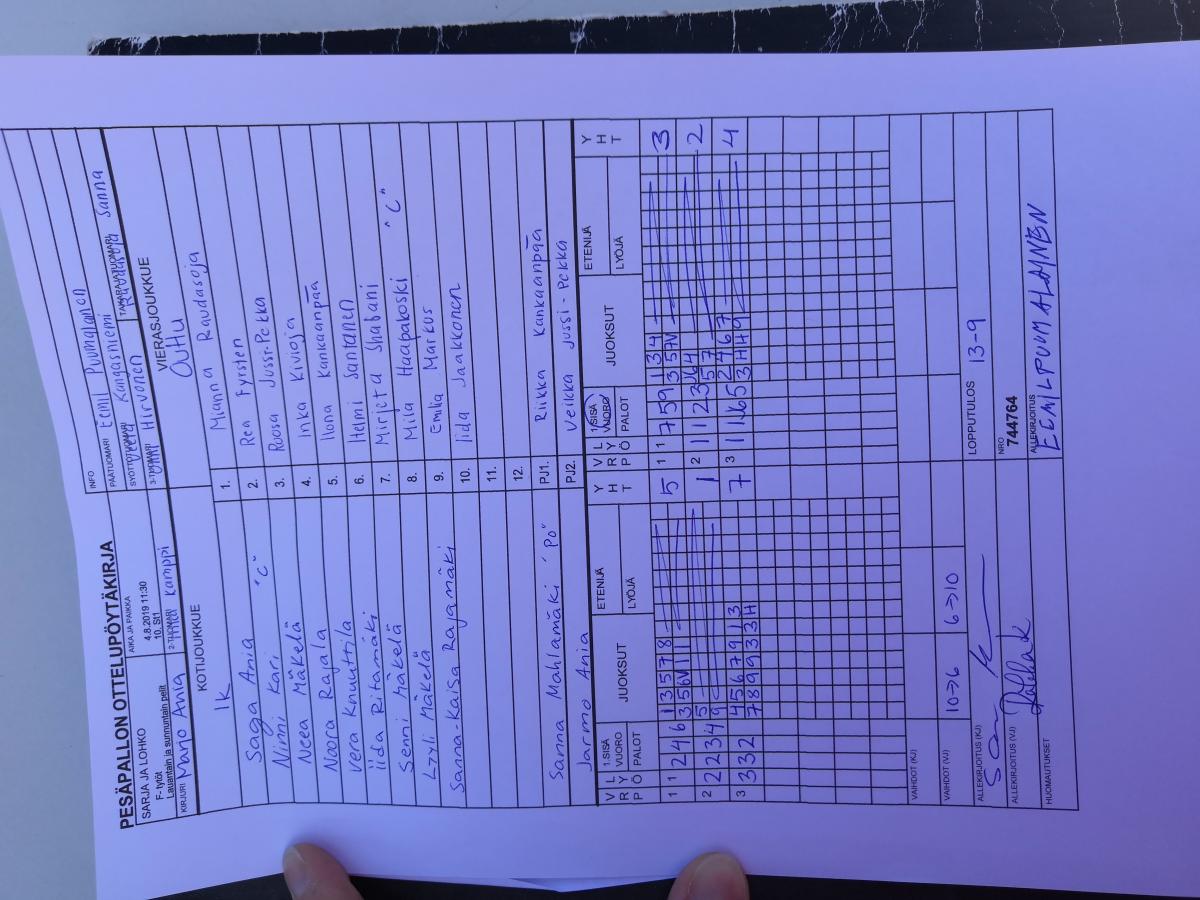 PESÄPALLON OTTELUPÖYTÄKIRJA
SARJA JA LOHKO
F- tytöt
Lauantain ja sunnuntain pelit
AIKA JA PAIKKA
4.8.2019 11:30
10, St1
INFO
PÄÄTUOMARI Eemil Puumalainen
SYÖTTÖTUOMARI Kangasniemi
KIRJURI Marjo Ania
2-TUOMARI Kamppi
3-TUOMARI Hirvonen
TAKARAJATUOMARI Raudasoja Sanna
KOTIJOUKKUE IK
VIERASJOUKKUE OuHu
Saga Ania "C" 1. Mianna Raudasoja
Ninni Kari 2. Rea Fyrsten
Neea Mäkelä 3. Roosa Jussi-Pekka
Noora Rajala 4. Inka Kivioja
Vera Knuuttila 5. Ilona Kankaanpää
Iida Ritamäki 6. Hemmi Santanen
Senni Mäkelä 7. Mirjeta Shabani
Lyyli Mäkelä 8. Milja Haapakoski "C"
Sanna-Kaisa Rajamäki 9. Emilia Markus
10. Iida Jaakkonen
11.
12.
Sanna Mahlamäki "PO" PJ1. Riikka Kankaanpää
Jarmo Ania PJ2. Veikka Jussi-Pekka
V R P L Y Ö 1.SISÄ VUORO PALOT JUOKSUT ETENIJÄ LYÖJÄ Y H T V R P L Y Ö 1.SISÄ VUORO PALOT JUOKSUT ETENIJÄ LYÖJÄ Y H T
1 1 2 4 6 1 3 5 7 8 5 1 1 7 5 9 1 3 4 3
3 5 6 V 1 1 3 5 7 V
2 2 2 3 4 5 1 2 1 1 2 3 5 7 2
9
3 3 3 2 4 5 6 7 9 1 3 7 3 1 1 6 5 2 4 6 7 4
7 8 9 9 3 3 H 3 H H 9
VAIHDOT (KJ)
VAIHDOT (VJ) 10→6 6→10
ALLEKIRJOITUS (KJ)
LOPPUTULOS 13-9
ALLEKIRJOITUS (VJ)
NRO
744764
HUOMAUTUKSET
ALLEKIRJOITUS
EEMIL PUUMALAINEN